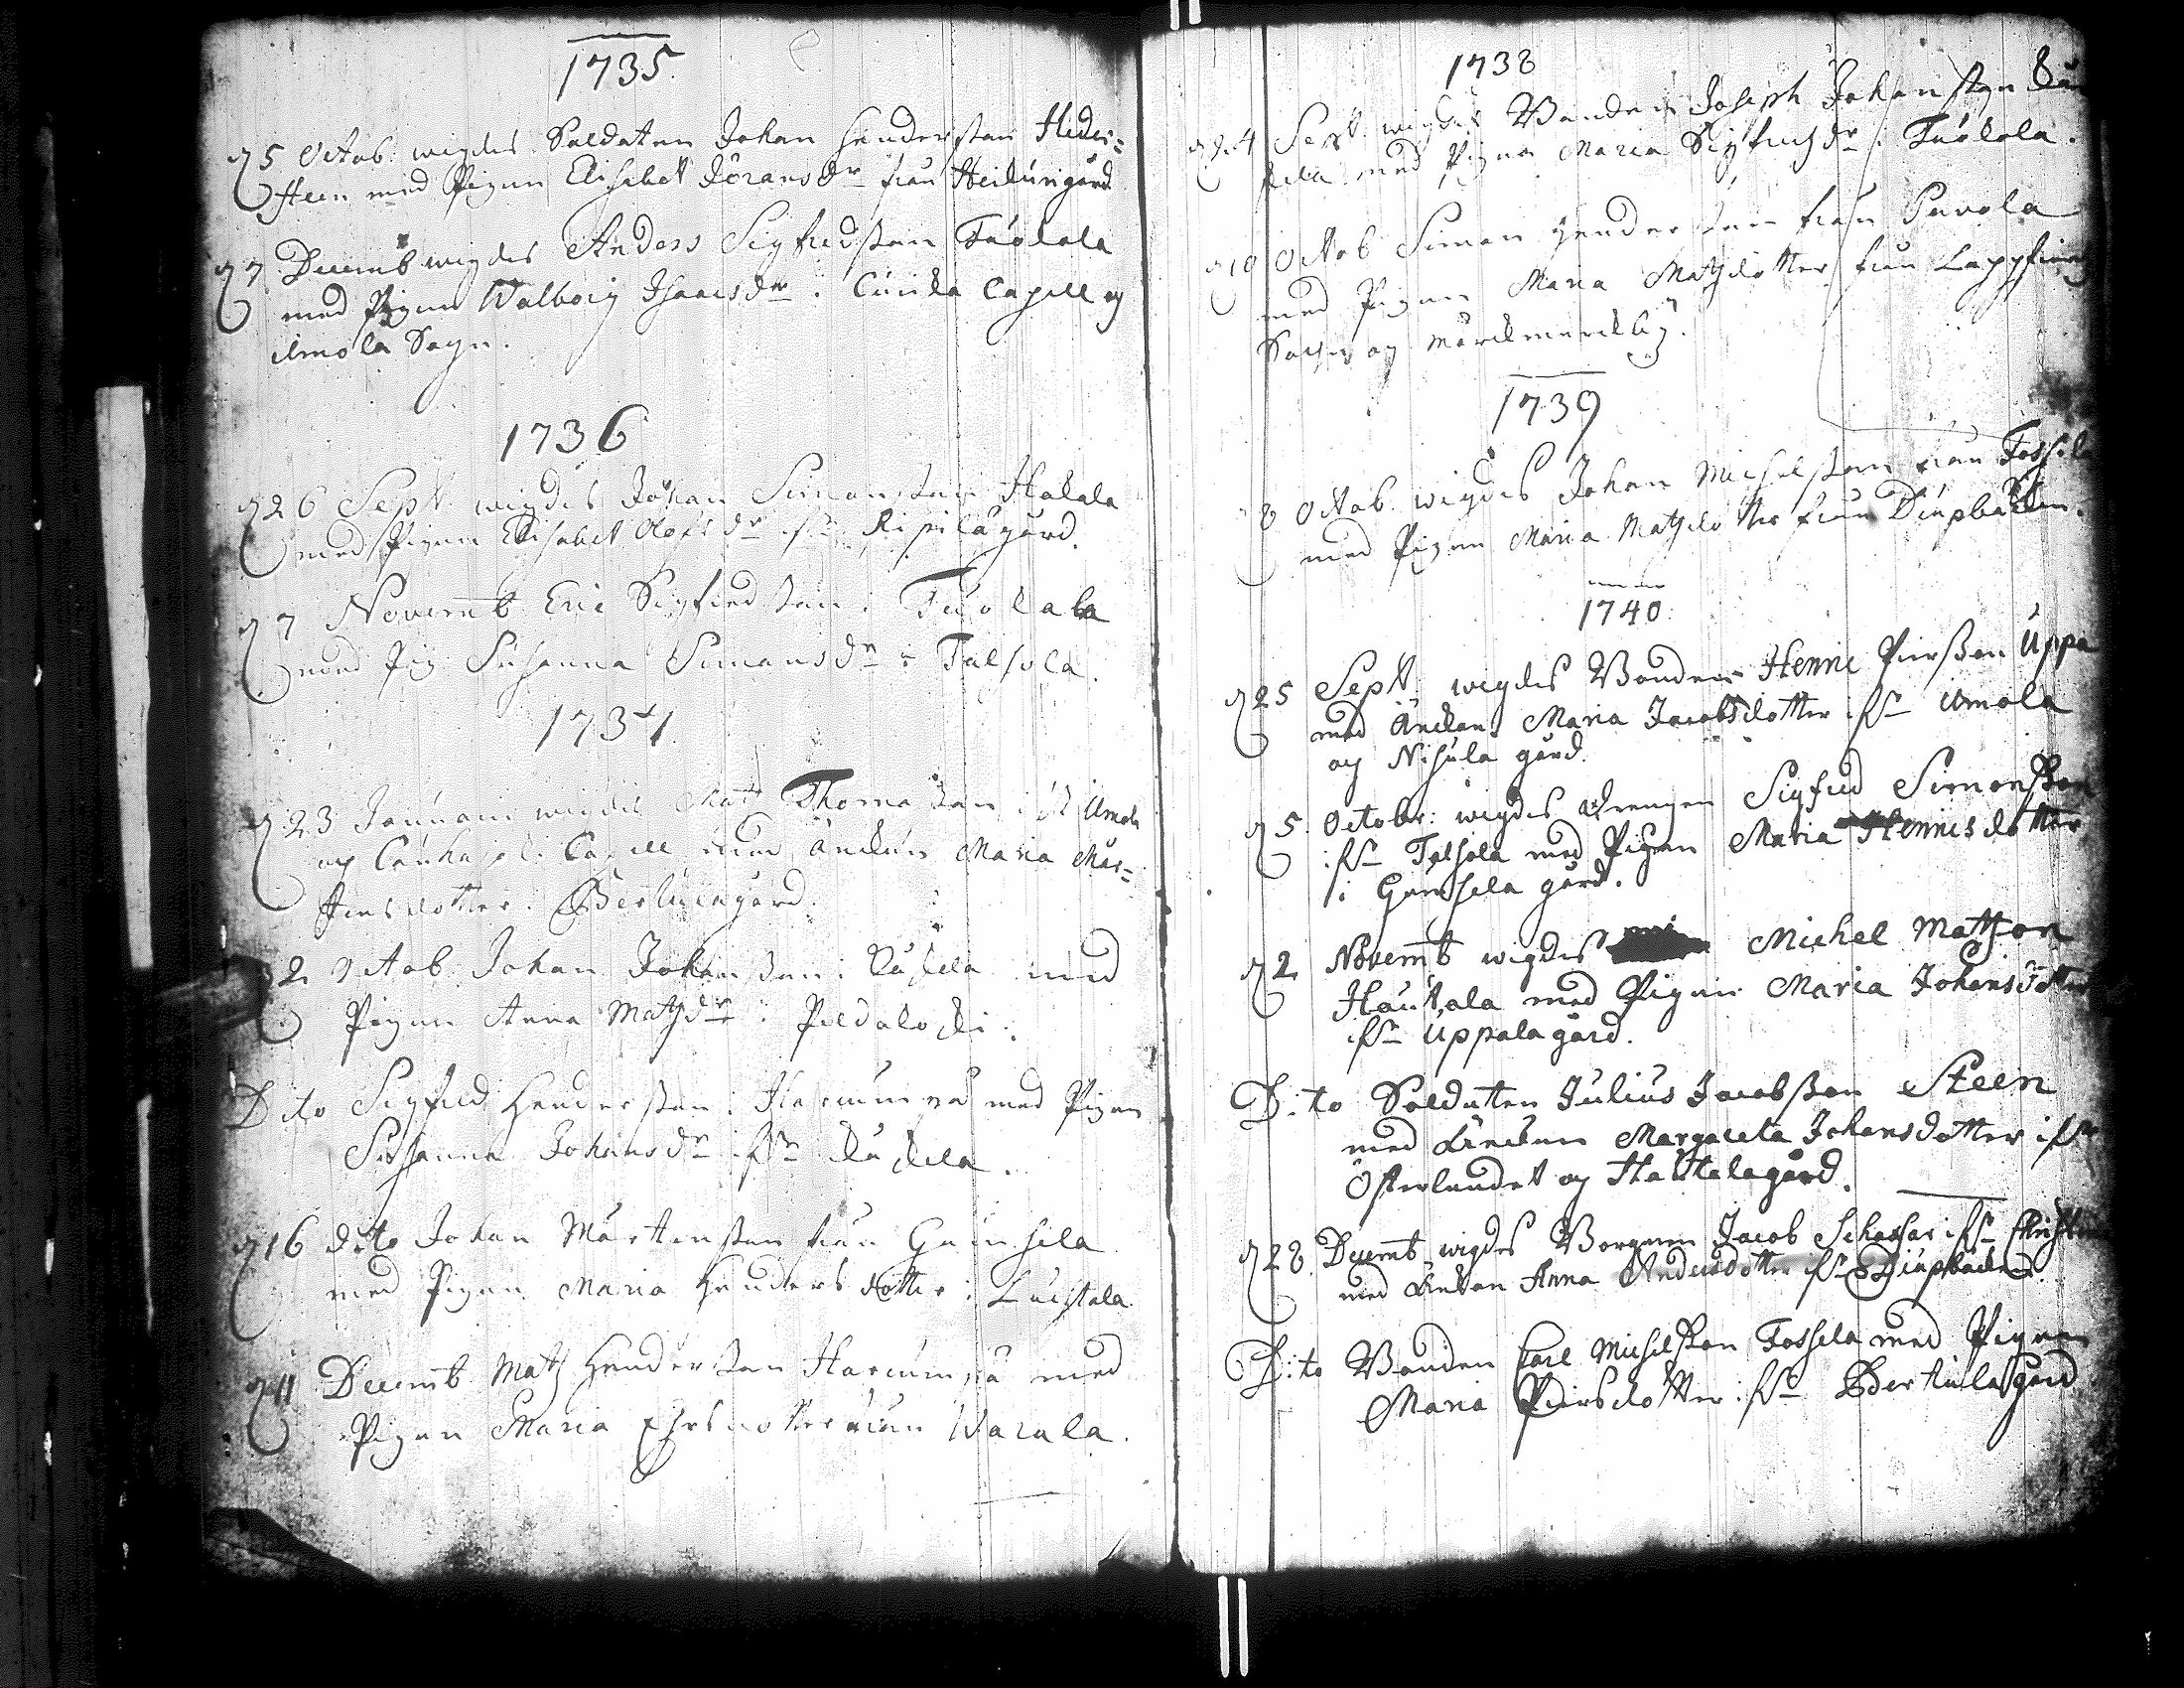 1735
d 5 Octob: wigdes Soldaten Johan Hendersson Heden=
steen med Pigan Elisabet Jöransdr från Heikürigård
d 7 Decemb wigdes Anders Sigfredsson Tuolala
med Pigan Walborg Isaacsdr i Cuicka Capell og
Ilmola Sogn.
1736
d 26 Sept. wigdes Johan Simonsson Hakala
med Pigan Elisabet Olofsdr ifrn Ripilägård.
d 7 Novemb Eric Sigfredsson i Tuolala
med Pig Susanna Simonsdr i Talsola.
1737
d 23 Januarii wigdes Matz Thomasson ifrå Ilmola
og Cauhajoki Capell med Änckan Maria Mår=
tensdotter i Bertulagård.
d 2 Octob Johan Johansson i Kåskela med
Pigan Anna Matzdr i Peldaloski.
Dito Sigfred Hendersson i Harcumpä med Pigan
Susanna Johansdr ifrn Kåskela.
d 16 dito Johan Mårtensson från Gamsela
med Pigan Maria Hendersdotter i Luistala.
d 11 Decemb Matz Hendersson Harcumpä med
Pigan Maria Ehrsdotter från Warala.
1738 8
d 24 Sept. wigdes Bonden Joseph Johansson Kås
kela med Pigan Maria Sigfredzdr i Tuolala.
d 10 Octob Simon Hendersson från Pavola
med Pigan Maria Matzdotter från Lappfierd
Sochn og Mårckmarckbÿ.
1739
8 Octob. wigdes Johan Michelsson från Fossila
med Pigan Maria Matzdotter från Diupbäcken.
1740
d 25 Sept. wigdes Bonden Henric Pärsson Uppa
med Änckan Maria Jacobsdotter ifrn Ilmola
og Nisula gård.
d 5 Octobr: wigdes Drengen Sigfred Simonsson
ifrn Talsola med Pigan Maria Hennisdotter
i Gamsela gård.
d 2 Novemb wigdes Michel Mattson
Hautala med Pigan Maria Johansdotter
ifrn Uppala gård.
Dito Soldaten Julius Jacobsson Steen
med Änckan Margareta Johansdotter ifrn
Österlandet og Hattalagård.
d 28 Decemb wigdes Borgaren Jacob Schaefar ifrn Christi
med Änckan Anna Andersdotter ifrn Diupbäcken
Dito Bonden Carl Michelsson Fossela med Pigan
Maria Pärsdotter ifrn Bertulagård